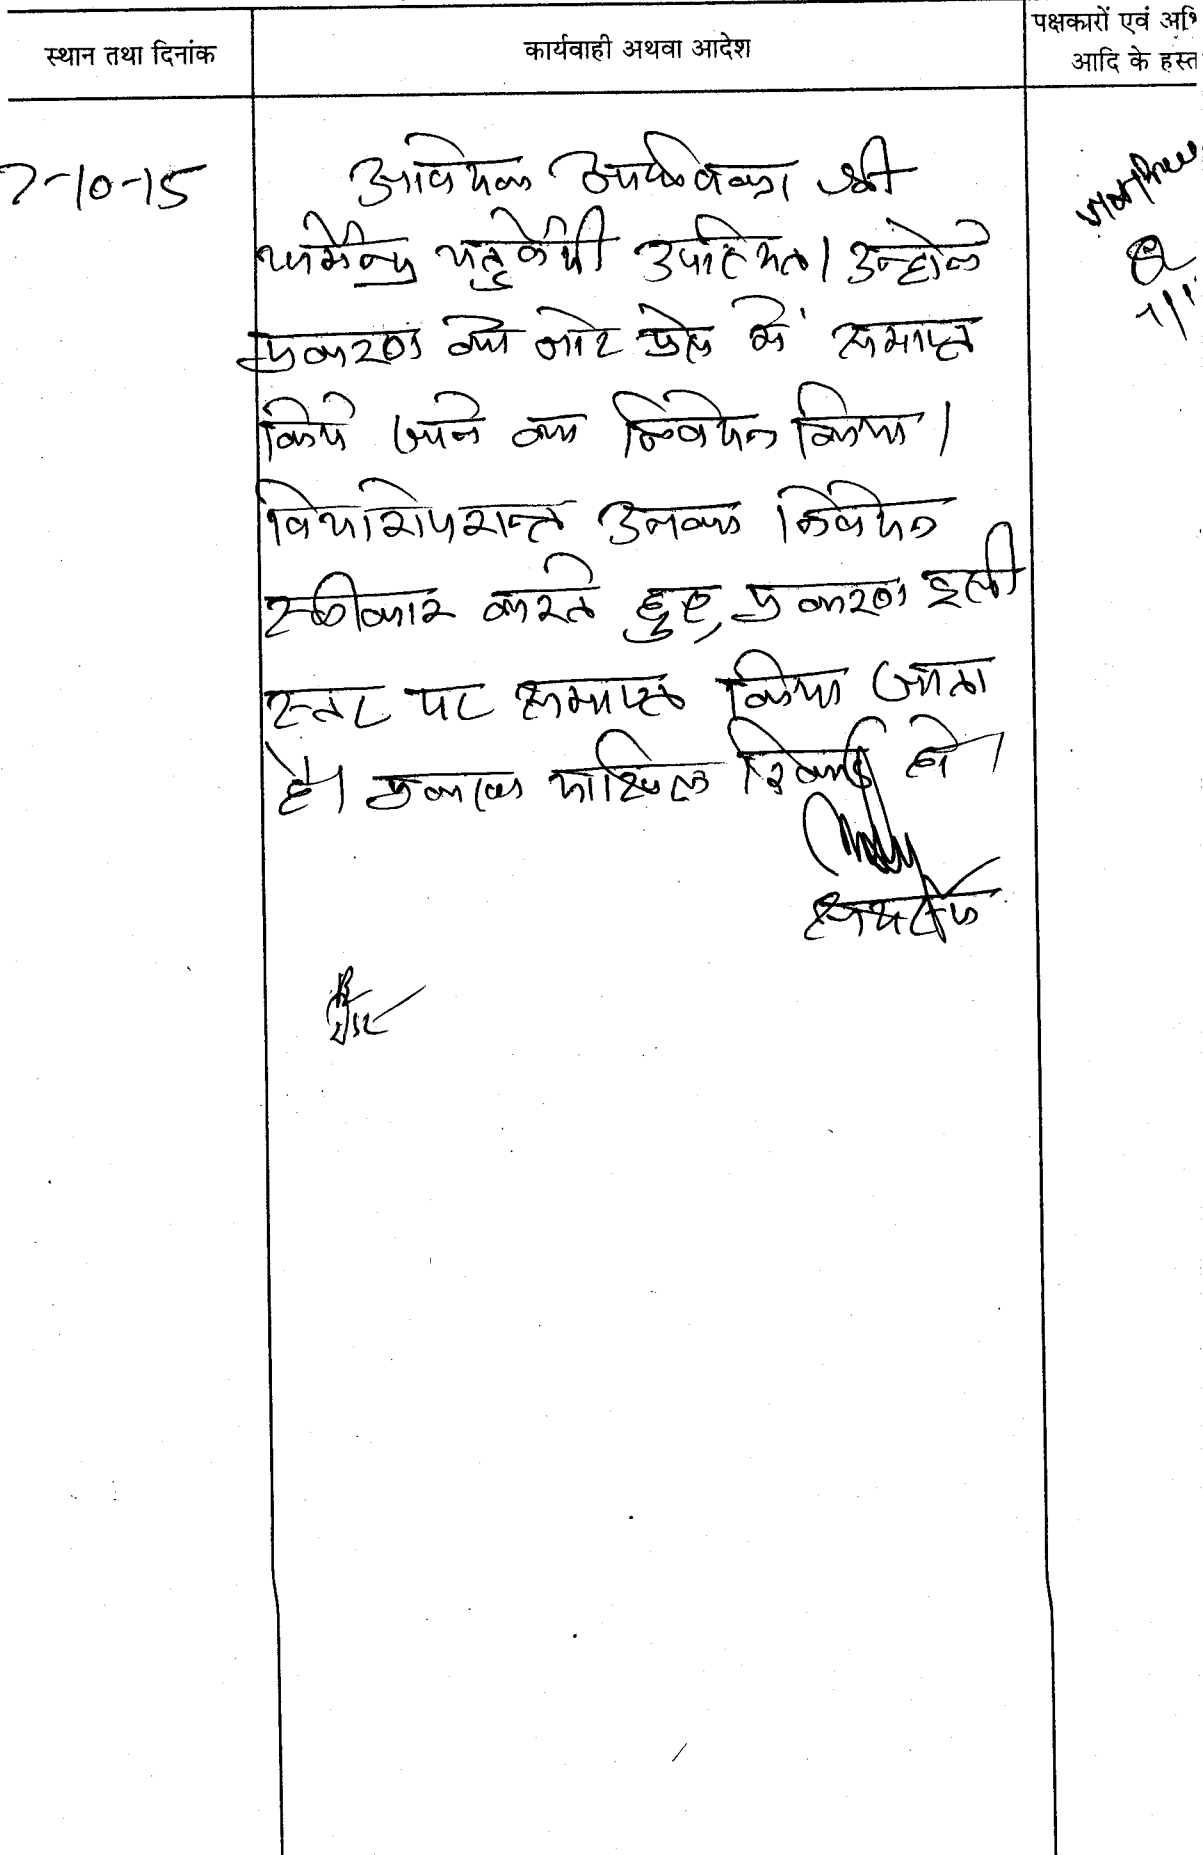 स्थान तथा दिनांक
कार्यवाही अथवा आदेश
पक्षकारों एवं अभि
आदि के हस्त
7-10-15
आवेदक अधिवक्ता श्री
धर्मेन्द्र चतुर्वेदी उपस्थित। उन्होंने
प्रकरण को नॉट प्रेस में समाप्त
किये जाने का निवेदन किया।
विचारोपरान्त उनका निवेदन
स्वीकार करते हुए, प्रकरण इसी
स्तर पर समाप्त किया जाता
है। प्रकरण दाखिल रिकार्ड हो।